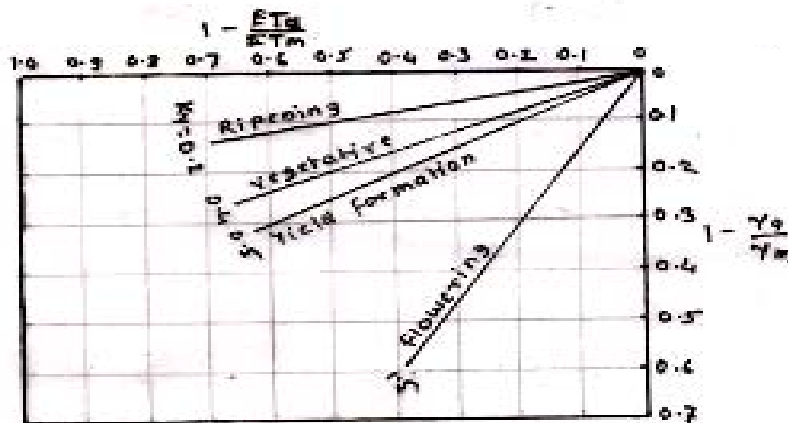 1 - ETa
ETm
1.0 0.9 0.8 0.7 0.6 0.5 0.4 0.3 0.2 0.1 0
0
0.1
0.2
0.3
0.4
0.5
0.6
0.7
1 - Ya
Ym
Ky=0.2
Ripening
0.4
vegetative
0.5
Yield formation
1.5
flowering